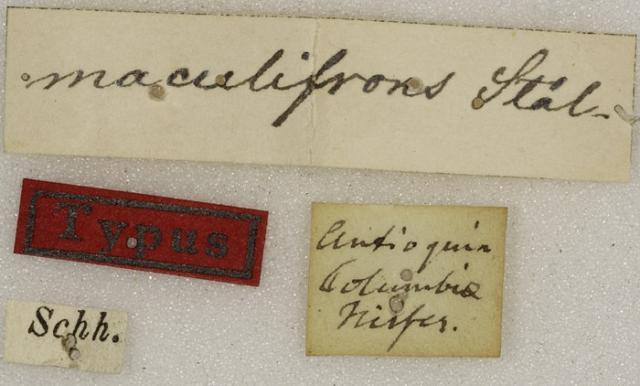 maculifrons Stål.
Typus
Antioquia
Columbia
Schh.